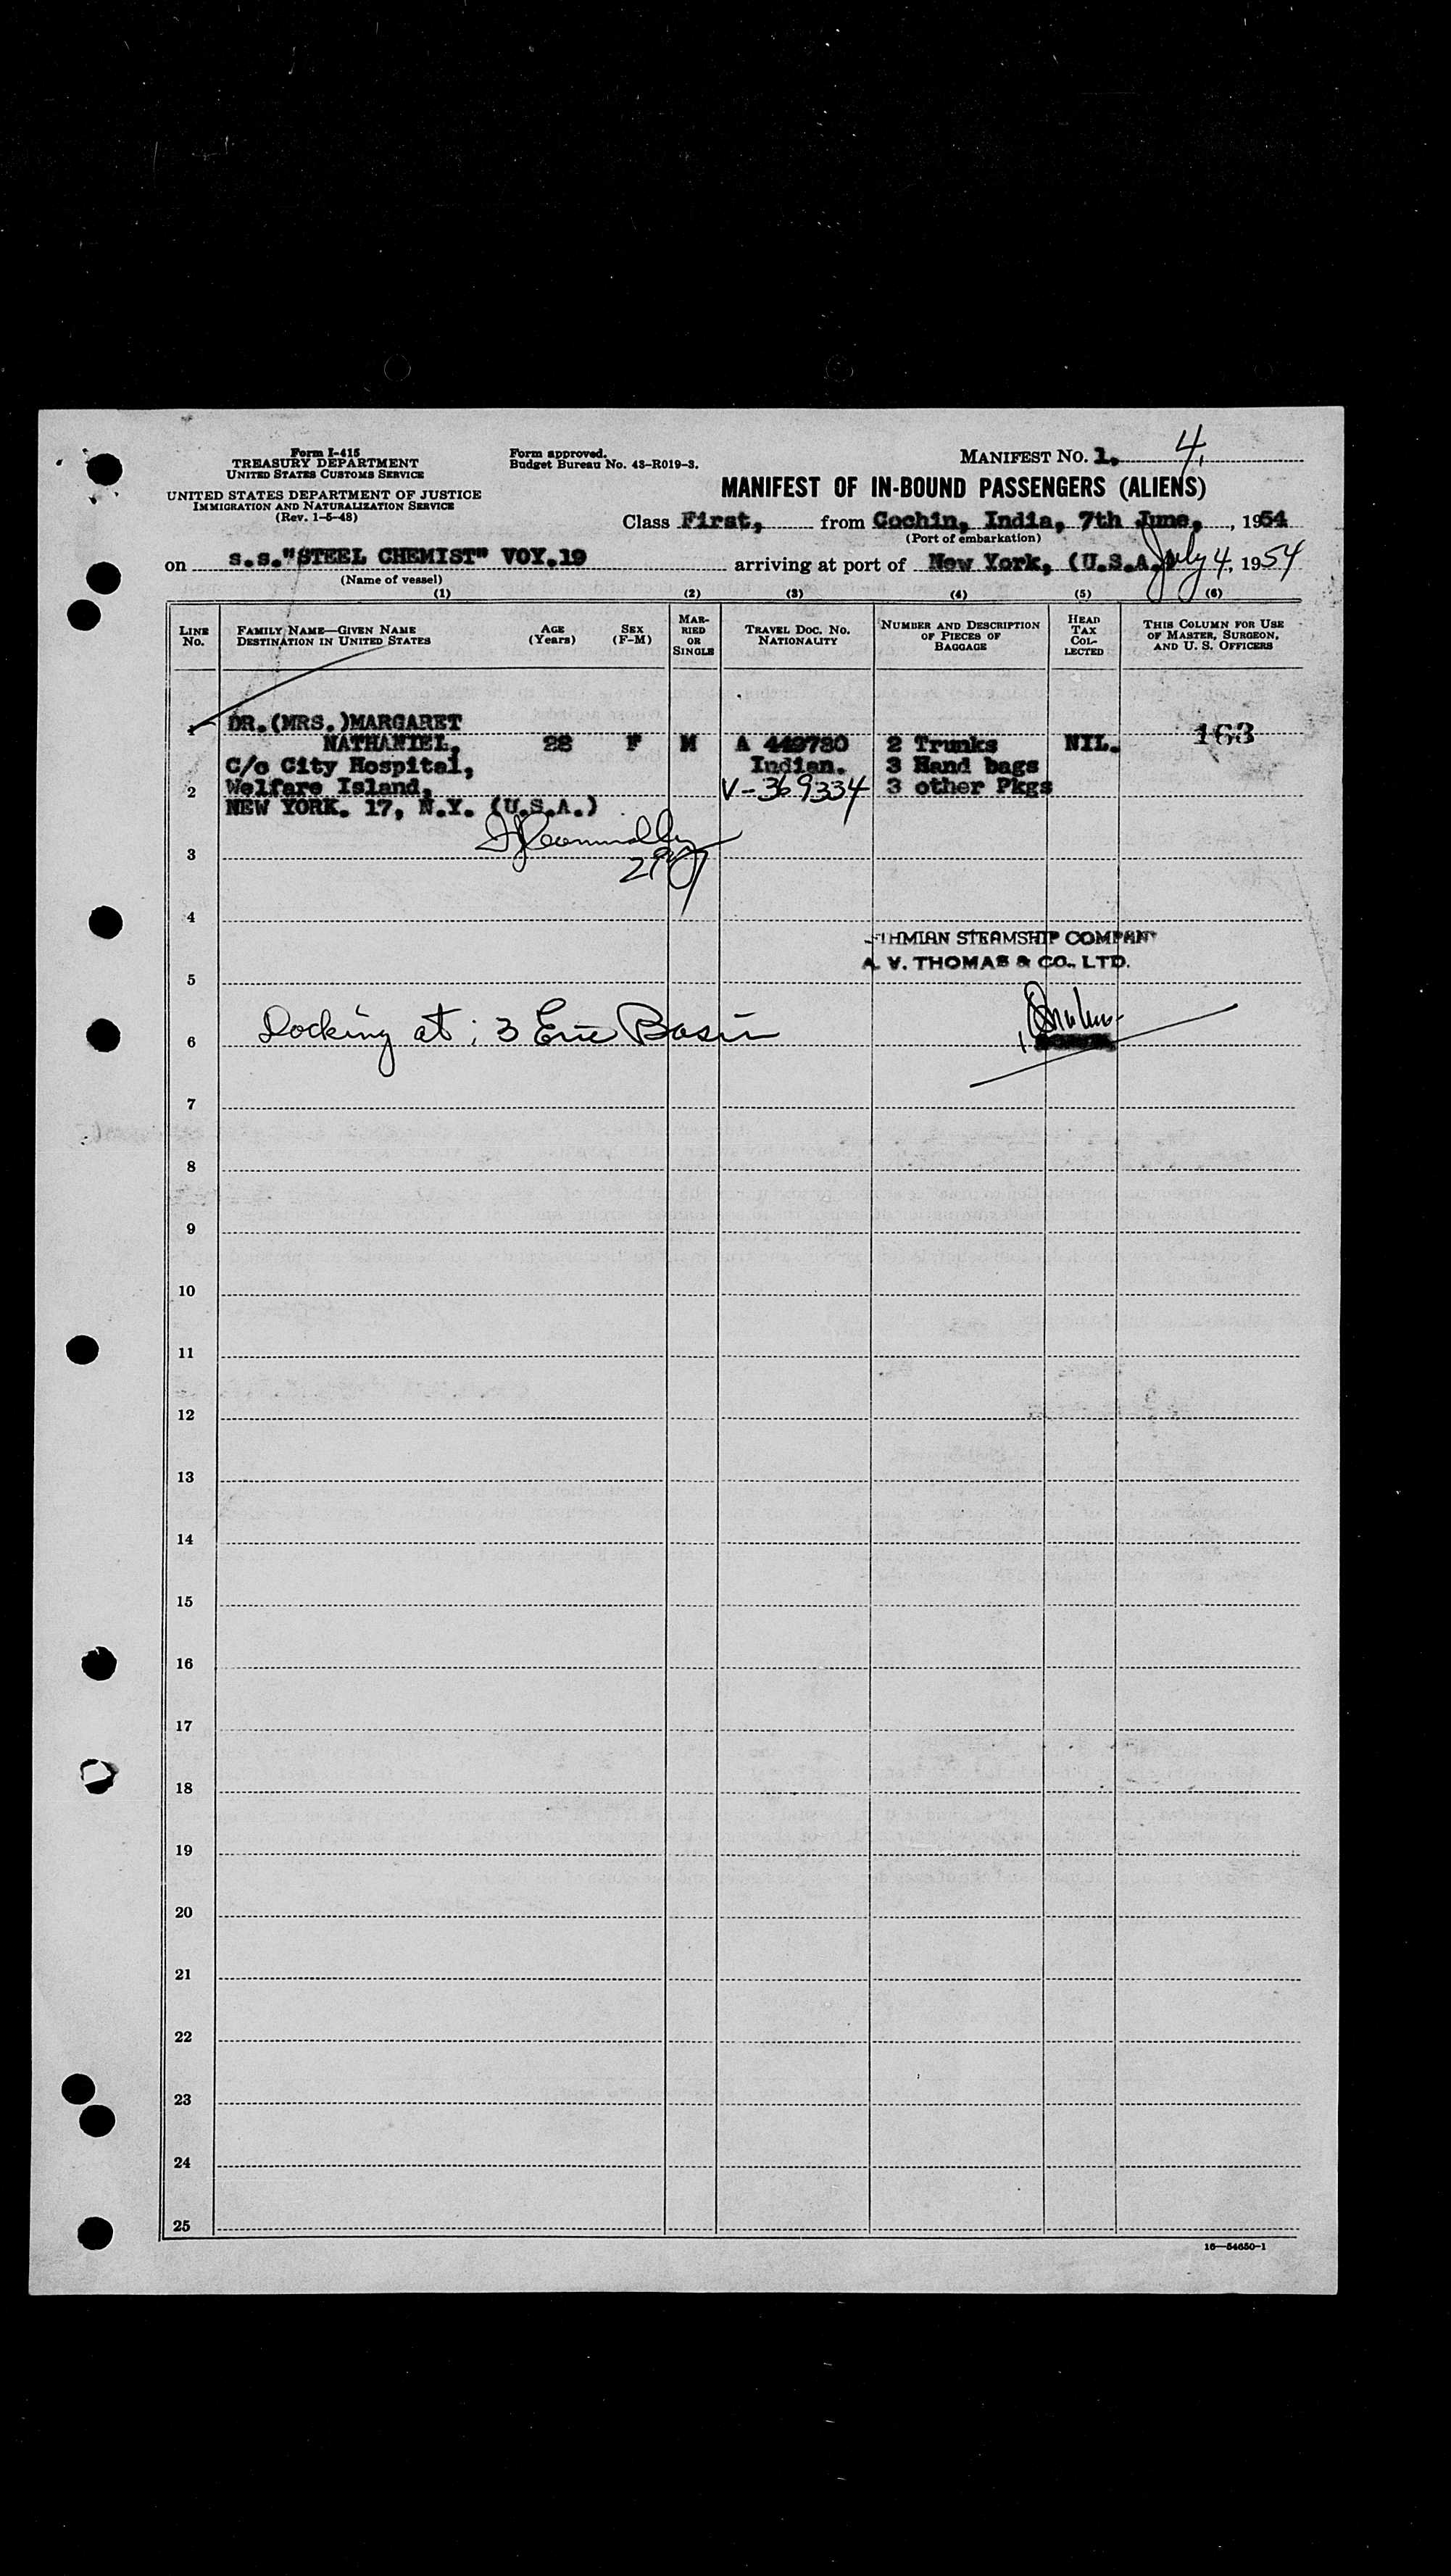 Form I-415
TREASURY DEPARTMENT
UNITED STATES CUSTOMS SERVICE
UNITED STATES DEPARTMENT OF JUSTICE
IMMIGRATION AND NATURALIZATION SERVICE
(Rev. 1-5-48)
Form approved.
Budget Bureau No. 43-R019-3.
MANIFEST NO. 1, 4,
MANIFEST OF IN-BOUND PASSENGERS (ALIENS)
Class First, from Cochin, India, 7th June, , 1954
(Port of embarkation)
on s.s."STEEL CHEMIST" VOY.19 arriving at port of New York, (U.S.A. July 4, 1954
(Name of vessel)
(1) (2) (3) (4) (5) (6)
LINE No.
FAMILY NAME—GIVEN NAME
DESTINATION IN UNITED STATES
AGE (Years)
SEX (F-M)
MAR-RIED OR SINGLE
TRAVEL DOC. NO. NATIONALITY
NUMBER AND DESCRIPTION OF PIECES OF BAGGAGE
HEAD TAX COL-LECTED
THIS COLUMN FOR USE OF MASTER, SURGEON, AND U. S. OFFICERS
1 DR.(MRS.)MARGARET
NATHANIEL, 28 F M A 449780 2 Trunks NIL. 163
C/o City Hospital, Indian. 3 Hand bags
2 Welfare Island, V-369334 3 other Pkgs
NEW YORK. 17, N.Y. (U.S.A.)
3
4
THMIAN STEAMSHIP COMPANY
A. V. THOMAS & CO., LTD.
5
6 Docking at: 3 Erie Basin
7
8
9
10
11
12
13
14
15
16
17
18
19
20
21
22
23
24
25
16—54650-1